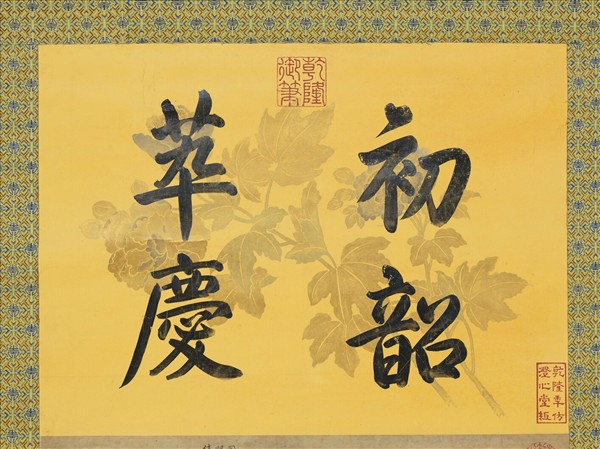 初韶
萃慶
乾隆
御筆
乾隆年仿
澄心堂紙